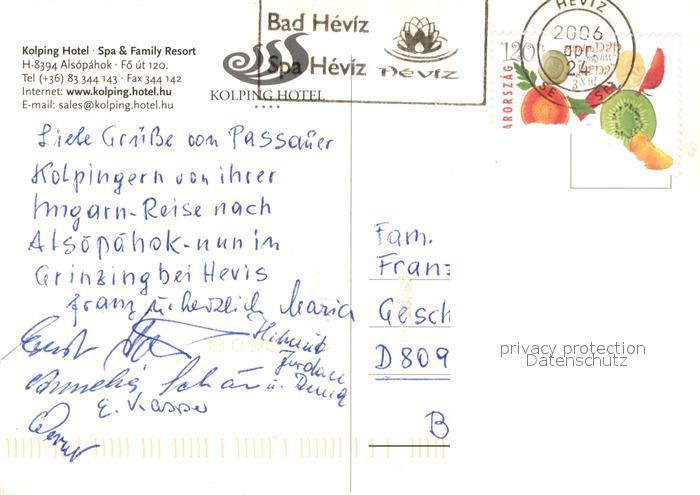 Kolping Hotel · Spa & Family Resort
H-8394 Alsópáhok · Fő út 120.
Tel (+36) 83 344 143 · Fax 344 142
Internet: www.kolping.hotel.hu
E-mail: sales@kolping.hotel.hu
KOLPING HOTEL
****
Bad Hévíz
Spa Hévíz
HÉVÍZ
HÉVÍZ
2006
24
120 Ft
MAGYARORSZÁG
Liebe Grüße von Passauer
Kolpingern von ihrer
Ungarn-Reise nach
Alsópáhok-nun in
Grinzing bei Hevis
Franz u. herzlich Maria
Ernst
Helmut
Jordan
Annelies
E. Kasper
Fam.
Franz
Gesch
D809
B
privacy protection
Datenschutz